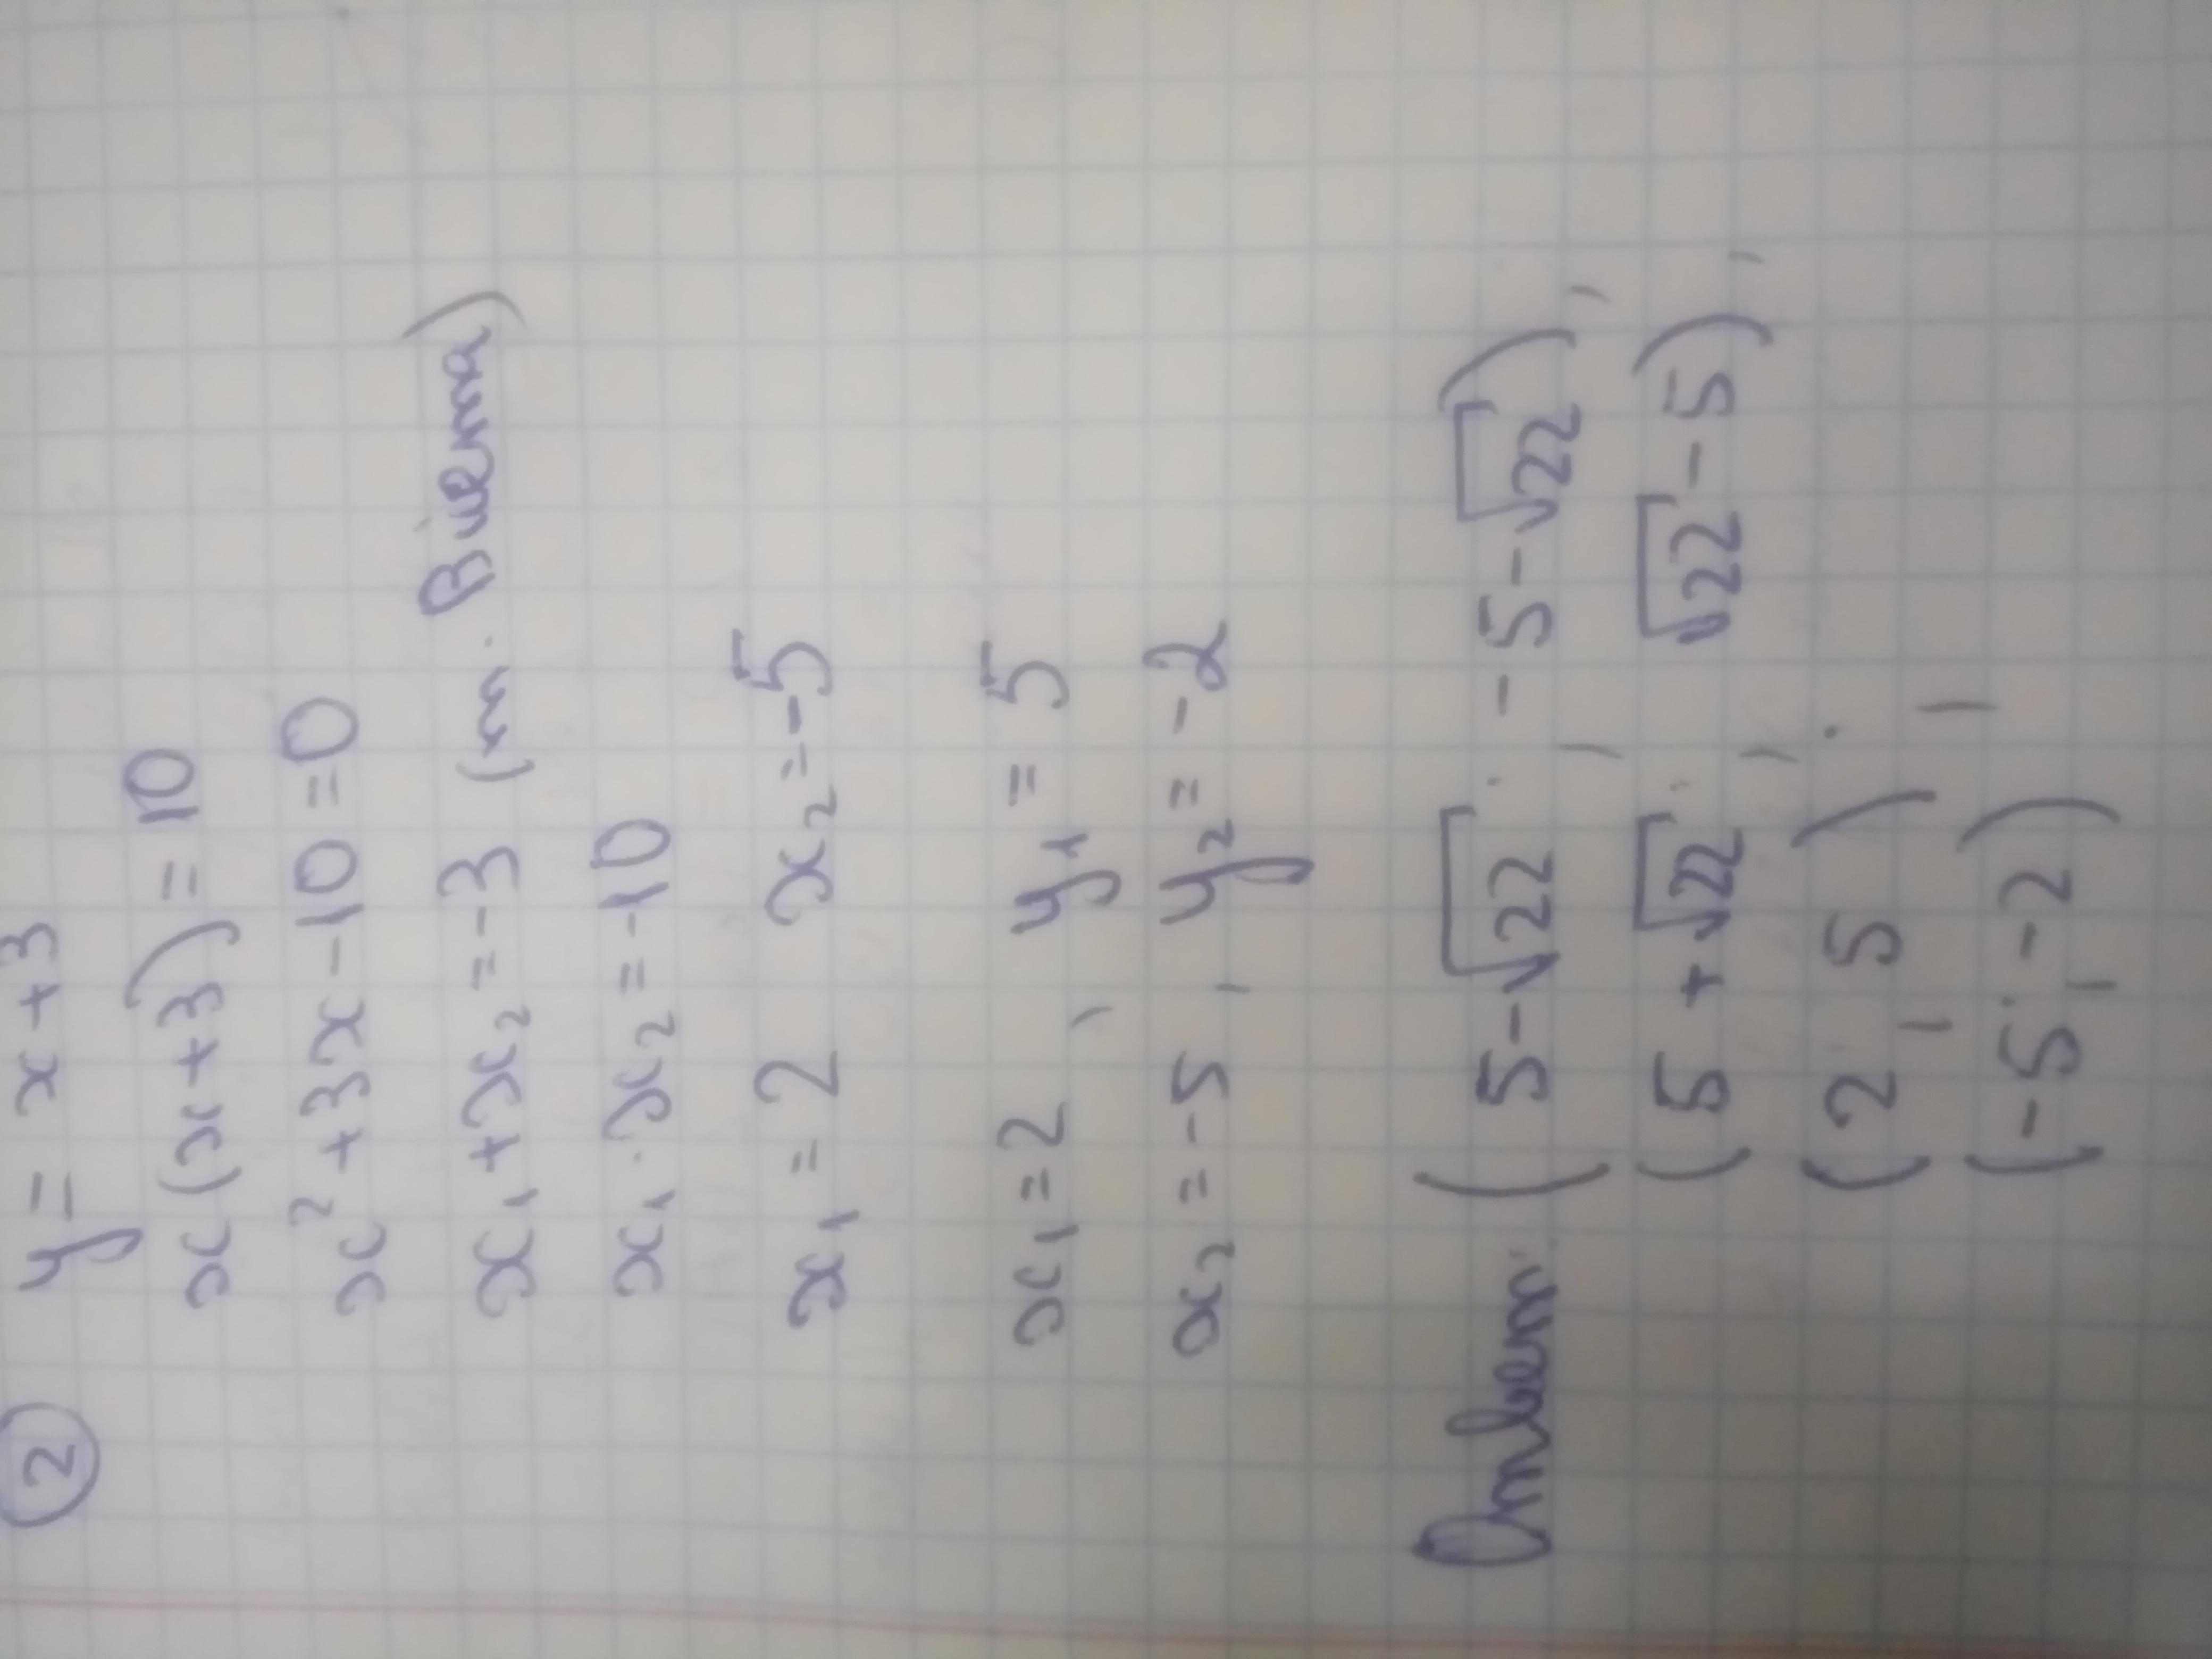 ② y = x + 3
x(x+3) = 10
x² + 3x - 10 = 0
x₁ + x₂ = -3 (т. Вієта)
x₁ · x₂ = -10
x₁ = 2 x₂ = -5
x₁ = 2 , y₁ = 5
x₂ = -5 , y₂ = -2
Ответ: (5-√22 ; -5-√22),
(5+√22 ; √22-5),
(2 ; 5);
(-5 ; -2)